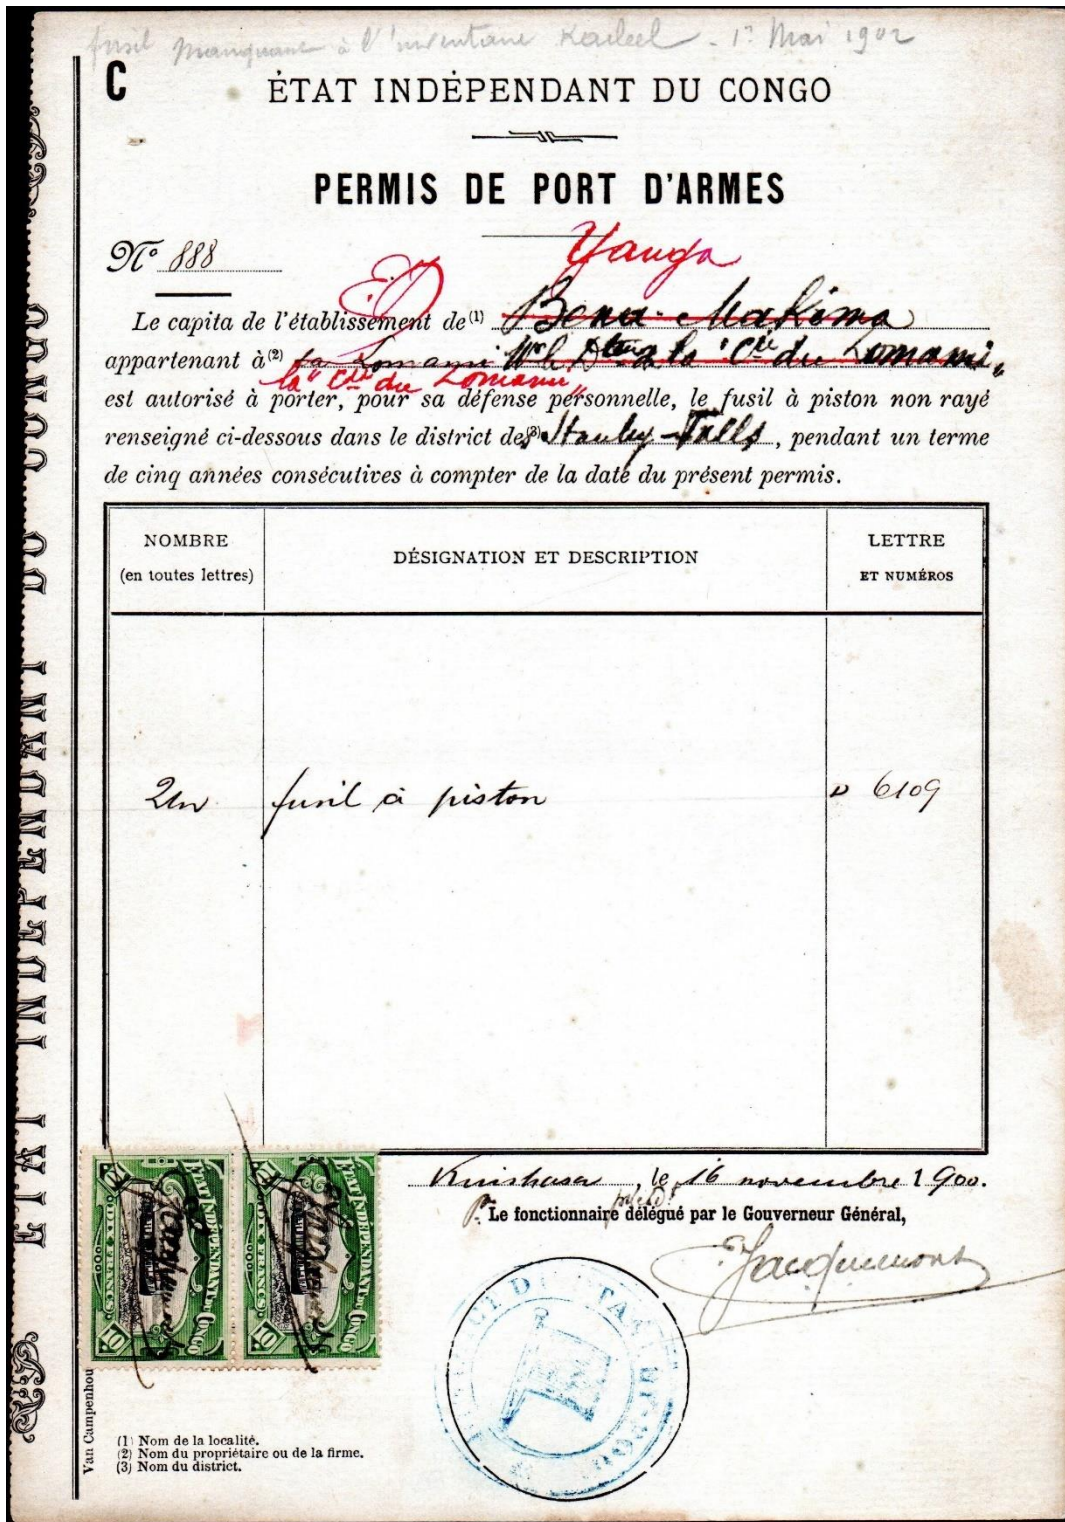 fusil manquant à l'inventaire - 1er Mai 1902
C
ÉTAT INDÉPENDANT DU CONGO
PERMIS DE PORT D'ARMES
No 888
Yanga
Le capita de l'établissement de (1) Bena-Makima
appartenant à (2) la Lomami Mr le Dteur de la "Cie du Lomami"
la "Cie du Lomami"
est autorisé à porter, pour sa défense personnelle, le fusil à piston non rayé
renseigné ci-dessous dans le district des (3) Stanley-Falls, pendant un terme
de cinq années consécutives à compter de la date du présent permis.
NOMBRE
(en toutes lettres)
DÉSIGNATION ET DESCRIPTION
LETTRE
ET NUMÉROS
Un fusil à piston 6109
Kinshasa, le 16 novembre 1900.
Le fonctionnaire délégué par le Gouverneur Général,
Jacquemont
ÉTAT INDÉPENDANT DU CONGO
10 ETAT INDEPENDANT DU CONGO DIX FRANCS 10
10 ETAT INDEPENDANT DU CONGO DIX FRANCS 10
Van Campenhou
(1) Nom de la localité.
(2) Nom du propriétaire ou de la firme.
(3) Nom du district.
ETAT INDEPENDANT DU CONGO